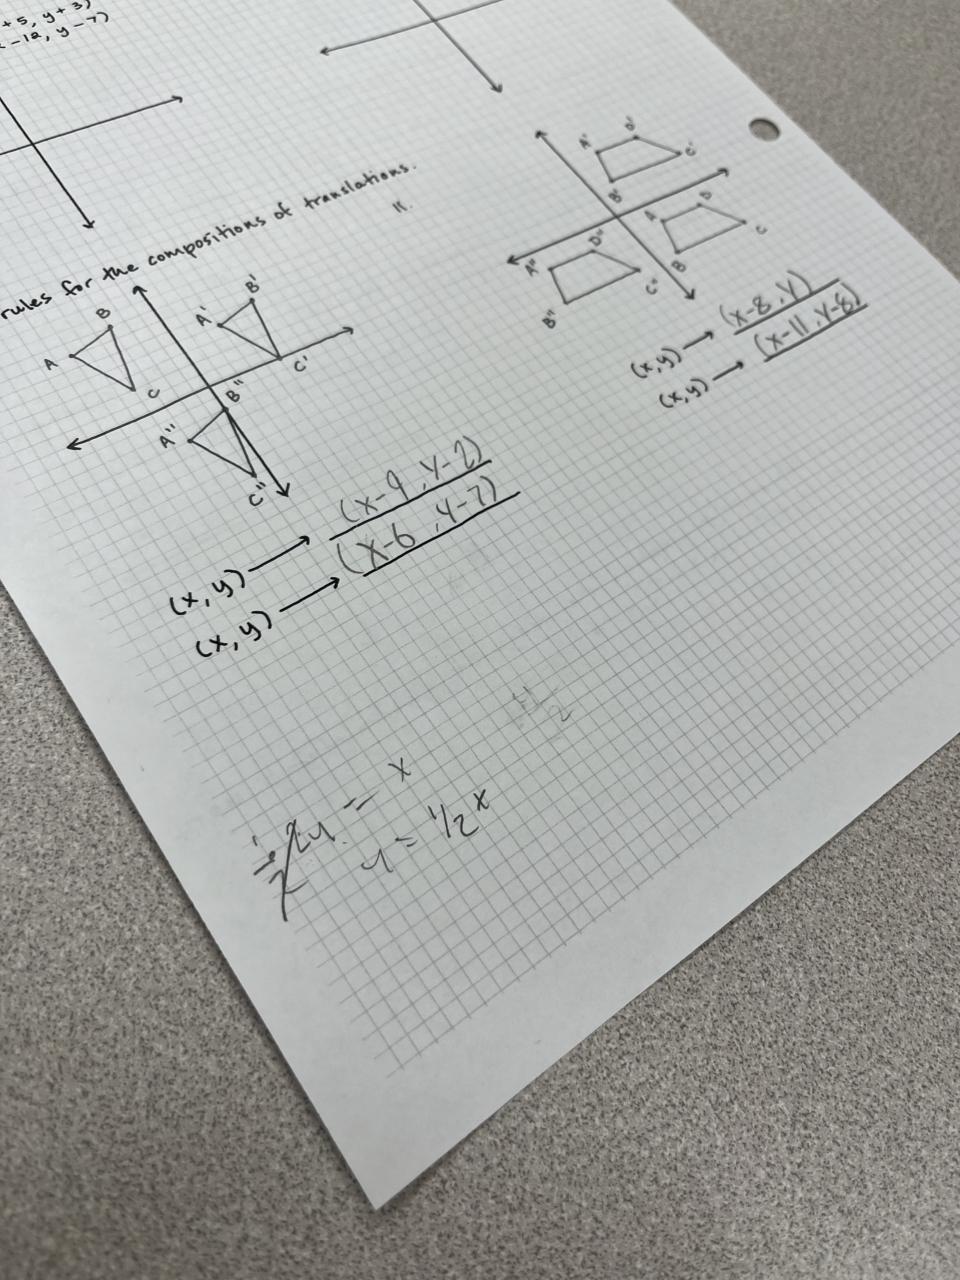 +5, y+3)
x-12, y-7)
rules for the compositions of translations.
11.
A B C
A' B' C'
A" B" C"
(x, y) → (x-9, y-2)
(x, y) → (x-6, y-7)
A' D' C' B'
A D C B
A" D" C" B"
(x, y) → (x-8, y)
(x, y) → (x-11, y-8)
2y = x
y = 1/2 x